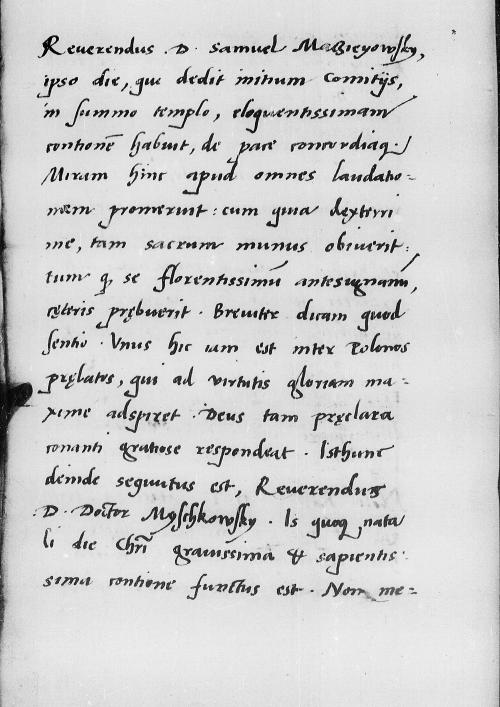 Reverendus D. Samuel Maczieyowsky,
ipso die, qui dedit initium Comitijs,
in summo templo, eloquentissimam
contionē habuit, de pace concordiaq.
Miram hinc apud omnes laudatio-
nem promeruit: cum quia dexterri
me, tam sacrum munus obiverit:
tum q se florentissimū antesignanū,
cęteris prębuerit. Breviter dicam quod
sentio. Unus hic iam est inter Polonos
pręlatos, qui ad virtutis gloriam ma-
xime adspiret. Deus tam pręclara
conanti gratiose respondeat. Isthunc
deinde sequutus est, Reverendus
D. Doctor Myschkowsky. Is quoq nata
li die Chri gravissima & sapientis
sima contione functus est. Non me-